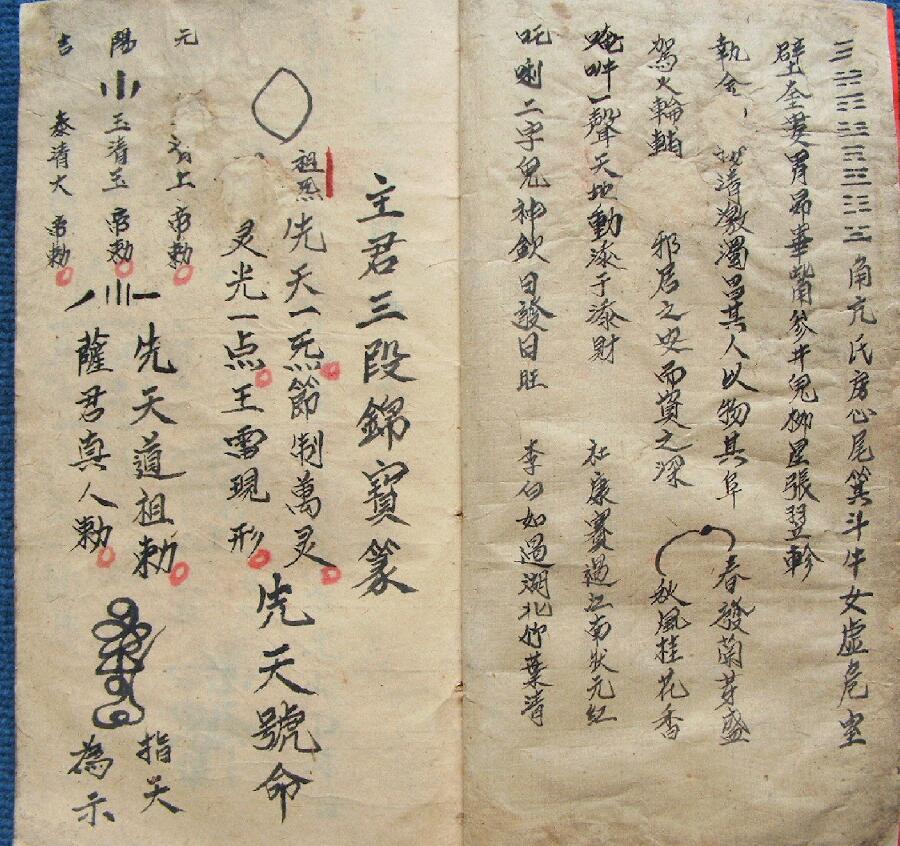 角亢氏房心尾箕斗牛女虛危室
壁奎婁胃昴畢觜參井鬼柳星張翌軫
執金 清激濁昌其人以物其阜 春發蘭芽盛
駕火輪 邪居之安而資之深 秋風桂花香
唵吽一聲天地動添子添財 社康賽過江南狀元紅
吒唎二字鬼神欽日發日旺 李白如過湖北竹葉清
主君三段錦寶篆
祖炁先天一炁節制萬灵
灵光一点王雷現形
先天號命
元 清上帝勅
陽 玉清玉帝勅
吉 泰清大帝勅
先天道祖勅
薩君真人勅
指天
為示